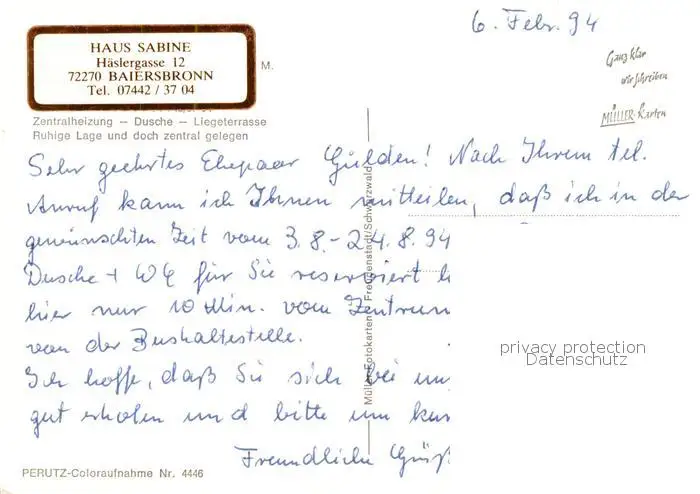 6. Febr. 94
HAUS SABINE
Häslergasse 12
72270 BAIERSBRONN
Tel. 07442 / 37 04
M.
Ganz klar
wir schreiben
MÜLLER-Karten
Zentralheizung – Dusche – Liegeterrasse
Ruhige Lage und doch zentral gelegen
Sehr geehrtes Ehepaar Gülden! Nach Ihrem tel.
Anruf kann ich Ihnen mitteilen, daß ich in der
gewünschten Zeit vom 3.8.-24.8.94
Dusche + WC für Sie reserviert
hier nur 10 Min. vom Zentrum
von der Bushaltestelle.
Ich hoffe, daß Sie sich bei
gut erholen und bitte um
Freundliche
Müller-Fotokarten Freudenstadt/Schwarzwald
privacy protection
Datenschutz
PERUTZ-Coloraufnahme Nr. 4446